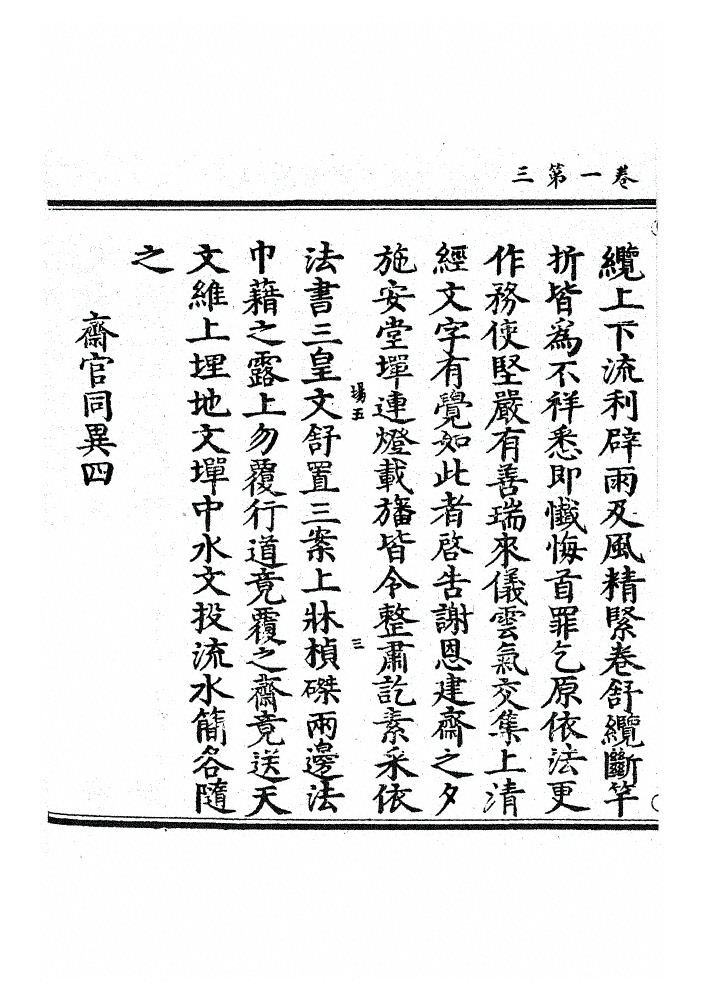 卷一第三
纜上下流利辟雨及風精緊卷舒纜斷竿
折皆爲不祥悉即懺悔首罪乞原依法更
作務使堅嚴有善瑞來儀雲氣交集上清
經文字有覺如此者啓告謝恩建齋之夕
施安堂墠連燈載旛皆令整肅訖素采依
場五 三
法書三皇文舒置三案上牀楨磔兩邊法
巾藉之露上勿覆行道竟覆之齋竟送天
文維上埋地文墠中水文投流水簡各隨
之
齋官同異四